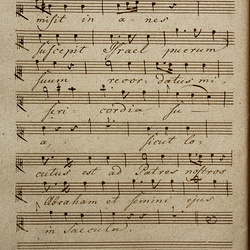 misit in a - nes
suscepit Israel puerum
suum recor - datus mi -
seri - cordia su -
a, sicut lo -
cutus est ad Patres nostros
Abraham et semini ejus
in saecula.